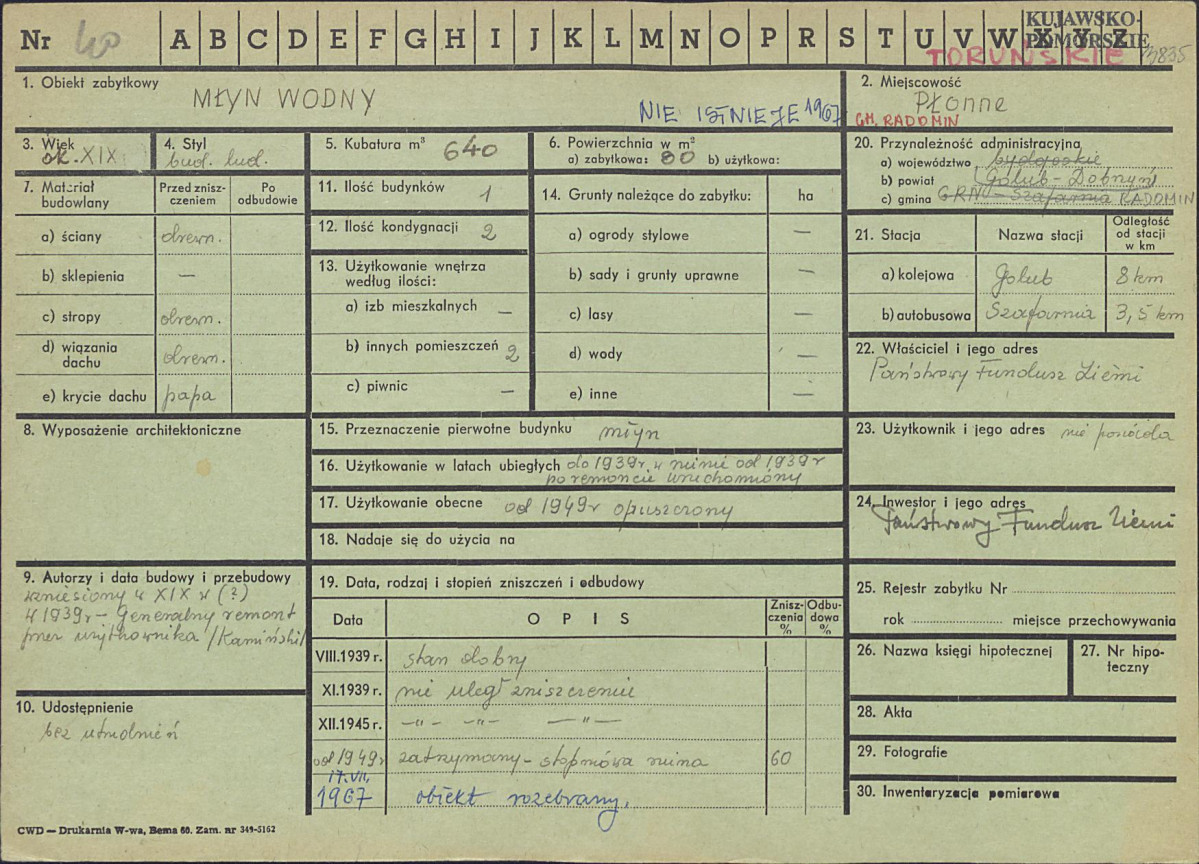 KUJAWSKO-
POMORSKIE
Nr 40 A B C D E F G H I J K L M N O P R S T U V W X Y Z
TORUŃSKIE
1. Obiekt zabytkowy
MŁYN WODNY
NIE ISTNIEJE 1967
2. Miejscowość
Płonne
GM. RADOMIN
3. Wiek
ok. XIX
4. Styl
bud. lud.
5. Kubatura m³ 640
6. Powierzchnia w m²
a) zabytkowa: 80 b) użytkowa:
20. Przynależność administracyjna
a) województwo bydgoskie
b) powiat Golub-Dobrzyń
c) gmina GRN - Szafarnia RADOMIN
7. Materiał budowlany
Przed zniszczeniem
Po odbudowie
a) ściany drewn.
b) sklepienia —
c) stropy drewn.
d) wiązania dachu drewn.
e) krycie dachu papa
11. Ilość budynków 1
12. Ilość kondygnacji 2
13. Użytkowanie wnętrza
według ilości:
a) izb mieszkalnych —
b) innych pomieszczeń 2
c) piwnic —
14. Grunty należące do zabytku: ha
a) ogrody stylowe —
b) sady i grunty uprawne —
c) lasy —
d) wody —
e) inne —
21. Stacja
Nazwa stacji
Odległość
od stacji
w km
a) kolejowa Golub 8 km
b) autobusowa Szafarnia 3,5 km
22. Właściciel i jego adres
Państwowy Fundusz Ziemi
8. Wyposażenie architektoniczne
15. Przeznaczenie pierwotne budynku młyn
16. Użytkowanie w latach ubiegłych do 1939r. w ruinie od 1939r
po remoncie uruchomiony
17. Użytkowanie obecne od 1949r opuszczony
18. Nadaje się do użycia na
23. Użytkownik i jego adres nie posiada
24. Inwestor i jego adres
Państwowy Fundusz Ziemi
9. Autorzy i data budowy i przebudowy
wzniesiony w XIX w (?)
w 1939r - Generalny remont
przez użytkownika /Kamiński/
10. Udostępnienie
bez utrudnień
19. Data, rodzaj i stopień zniszczeń i odbudowy
Data
OPIS
Zniszczenia %
Odbudowa %
VIII.1939 r. stan dobry
XI.1939 r. nie uległ zniszczeniu
XII.1945 r. —"— —"— —"—
od 1949r zatrzymany - stopniowa ruina 60
17.VII.
1967 obiekt rozebrany.
25. Rejestr zabytku Nr
rok miejsce przechowywania
26. Nazwa księgi hipotecznej
27. Nr hipoteczny
28. Akta
29. Fotografie
30. Inwentaryzacja pomiarowa
CWD — Drukarnia W-wa, Bema 60. Zam. nr 349-5162